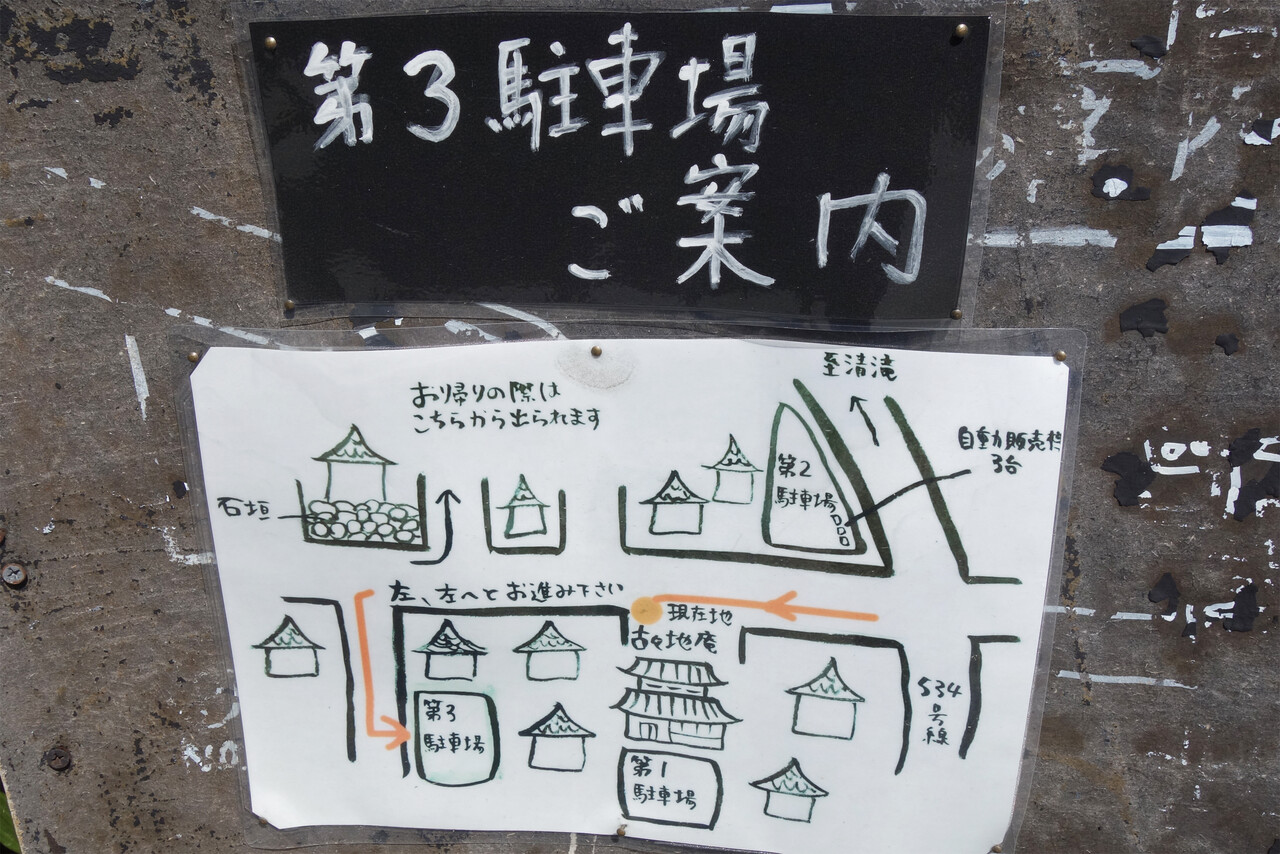 第3駐車場
ご案内
至清滝
お帰りの際は
こちらから出られます
自動販売機
3台
第2
駐車場
石垣
左、左へとお進み下さい
現在地
古々地庵
534
号
線
第3
駐車場
第1
駐車場